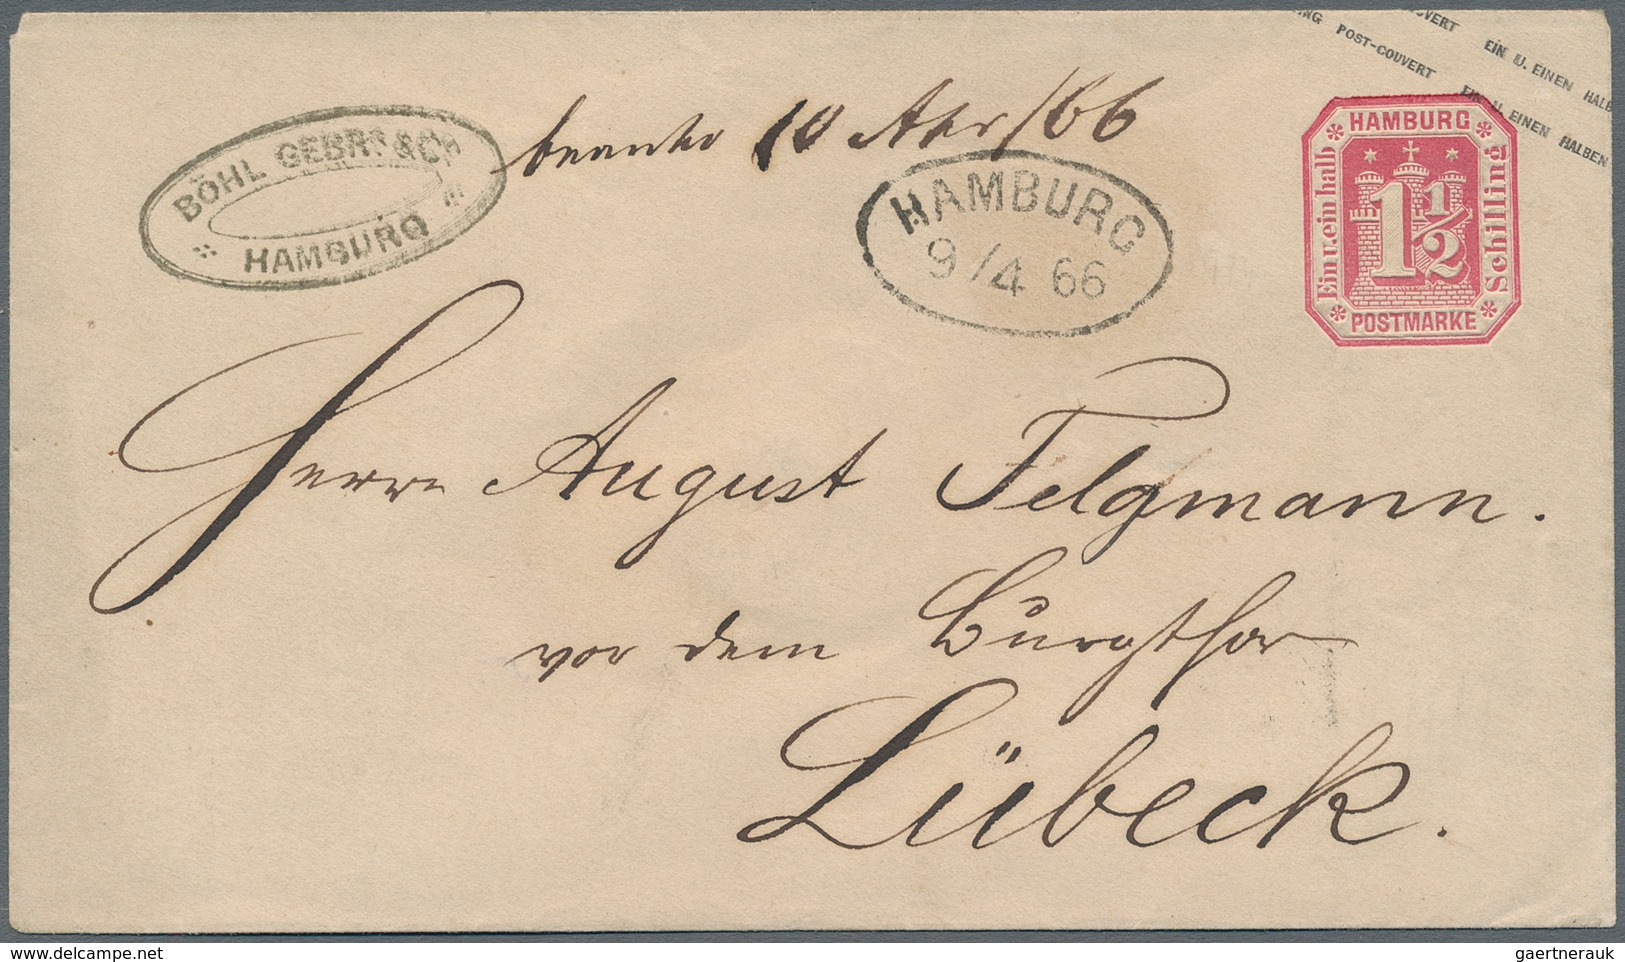 COUVERT EIN U. EINEN HALB
POST-COUVERT EIN U. EINEN HALBEN
BÖHL GEBRS & CO
HAMBURG
10 Apr/66
HAMBURG
9/4 66
HAMBURG
Ein u. ein halb
1 1/2
Schilling
POSTMARKE
Herrn August Felgmann.
vor dem Burgthor
Lübeck.
delcampe.net
gaertnerauk